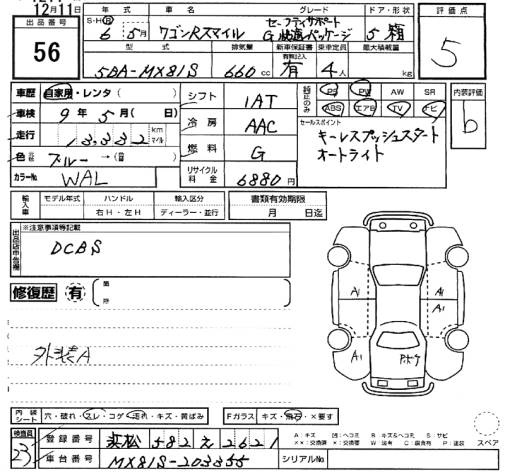 12月11日
出品番号
56
年式
車名
グレード
ドア・形状
評価点
S・H・R
6年5月
ワゴンRスマイル
セーフティサポート
G 快適パッケージ
5 箱
5
型式
排気量
新車保証書
有無記入
乗車定員
最大積載量
5BA-MX81S
660cc
有
4人
kg
車歴
自家用・レンタ( )
シフト
1AT
純正のみ
PS
PW
AW
SR
ABS
エアB
TV
ナビ
内装評価
b
車検
9年5月( 日)
冷房
AAC
セールスポイント
キーレスプッシュスタート
オートライト
走行
13,332
km
マイル
燃料
G
色
ブルー→( )
カラーNo
WAL
リサイクル
料金
6880円
輸入車
モデル年式
ハンドル
輸入区分
書類有効期限
右H・左H
ディーラー・並行
月 日迄
※注意事項等記載
DCBS
修復歴
有
箇所
外装A
A1
A1
A1
A1
内装
シート
穴・破れ・スレ・コゲ・汚れ・キズ・黄ばみ
Fガラス
キズ・飛石・×要す
スペア
検査員
23
登録番号
浜松 582 え 2621
車台番号
MX81S-203355
シリアルNo
A:キズ